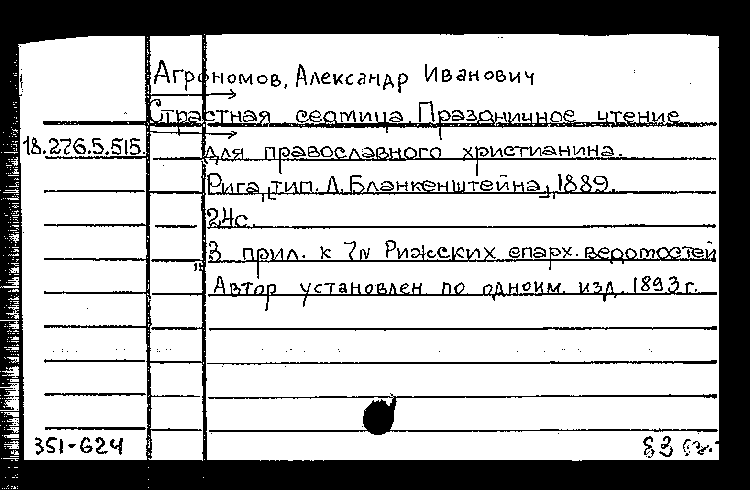 Агрономов, Александр Иванович
Страстная седмица. Праздничное чтение
18.276.5.515. для православного христианина.
Рига, [тип. Л. Бланкенштейна], 1889.
24с.
З прил. к 7№ Рижских епарх. ведомостей
Автор установлен по одноим. изд. 1893г.
351-624